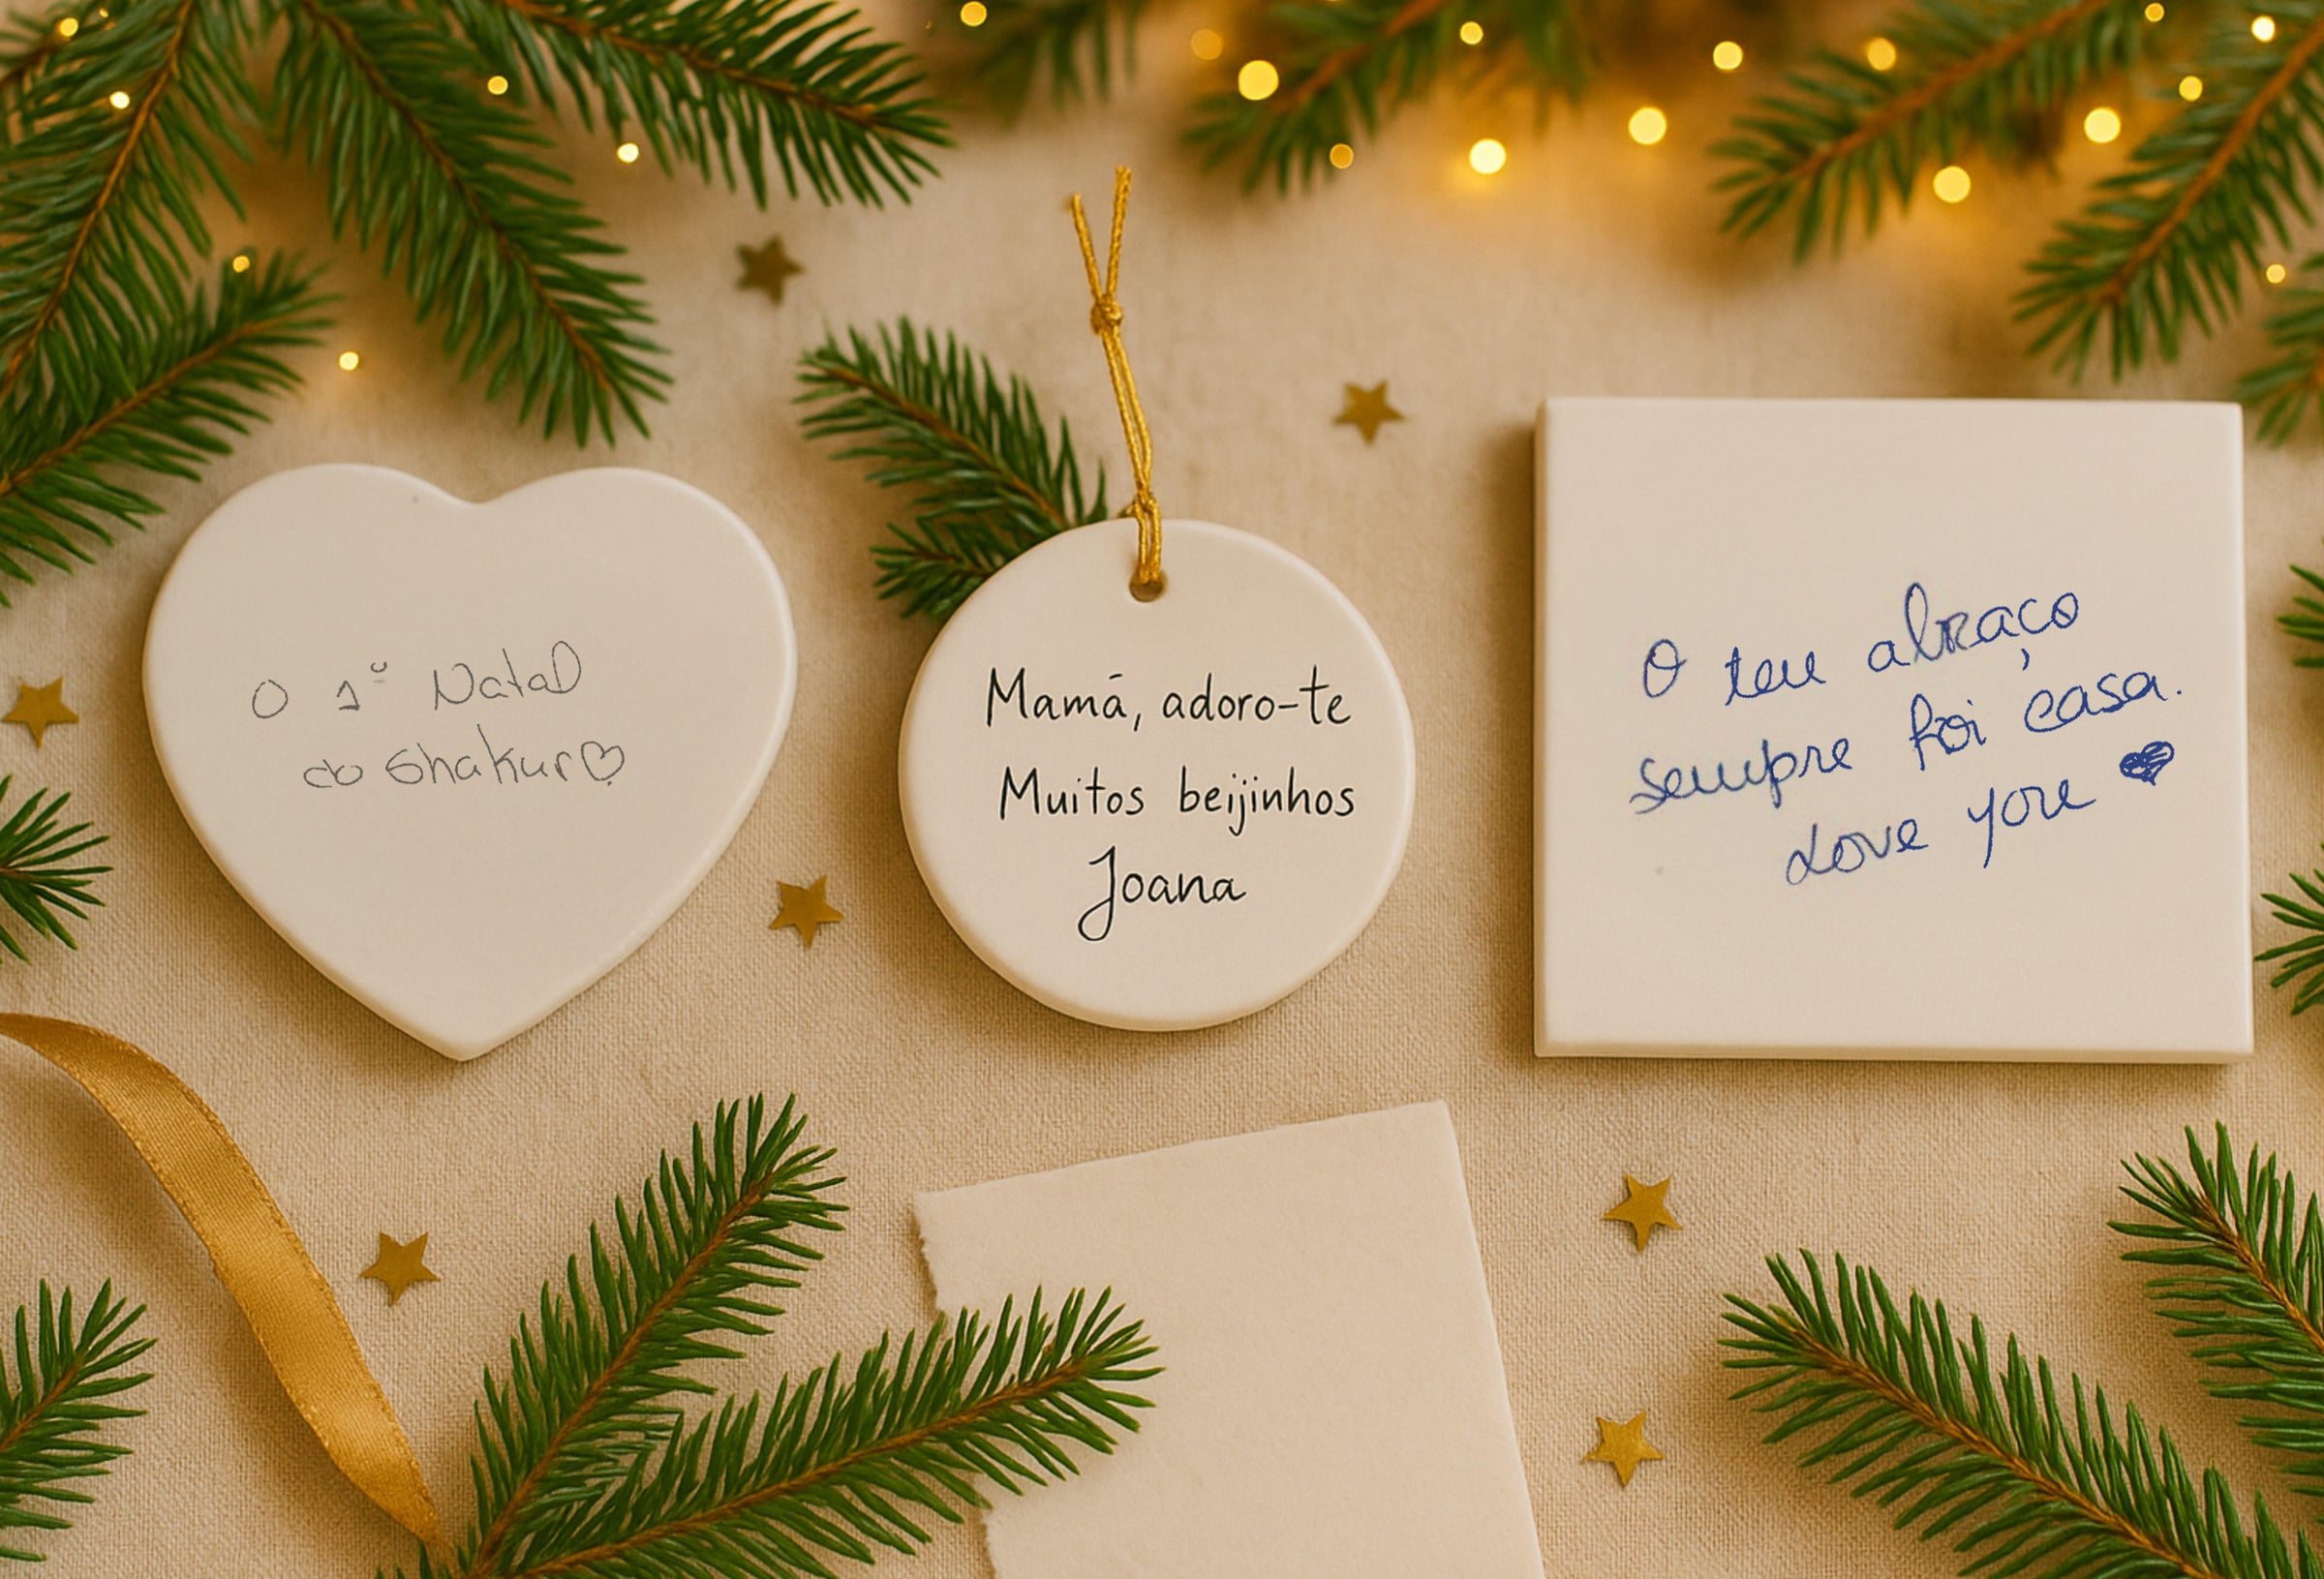 O 1º Natal
do Shakur♡
Mamã, adoro-te
Muitos beijinhos
Joana
O teu abraço
sempre foi casa.
Love you ♥